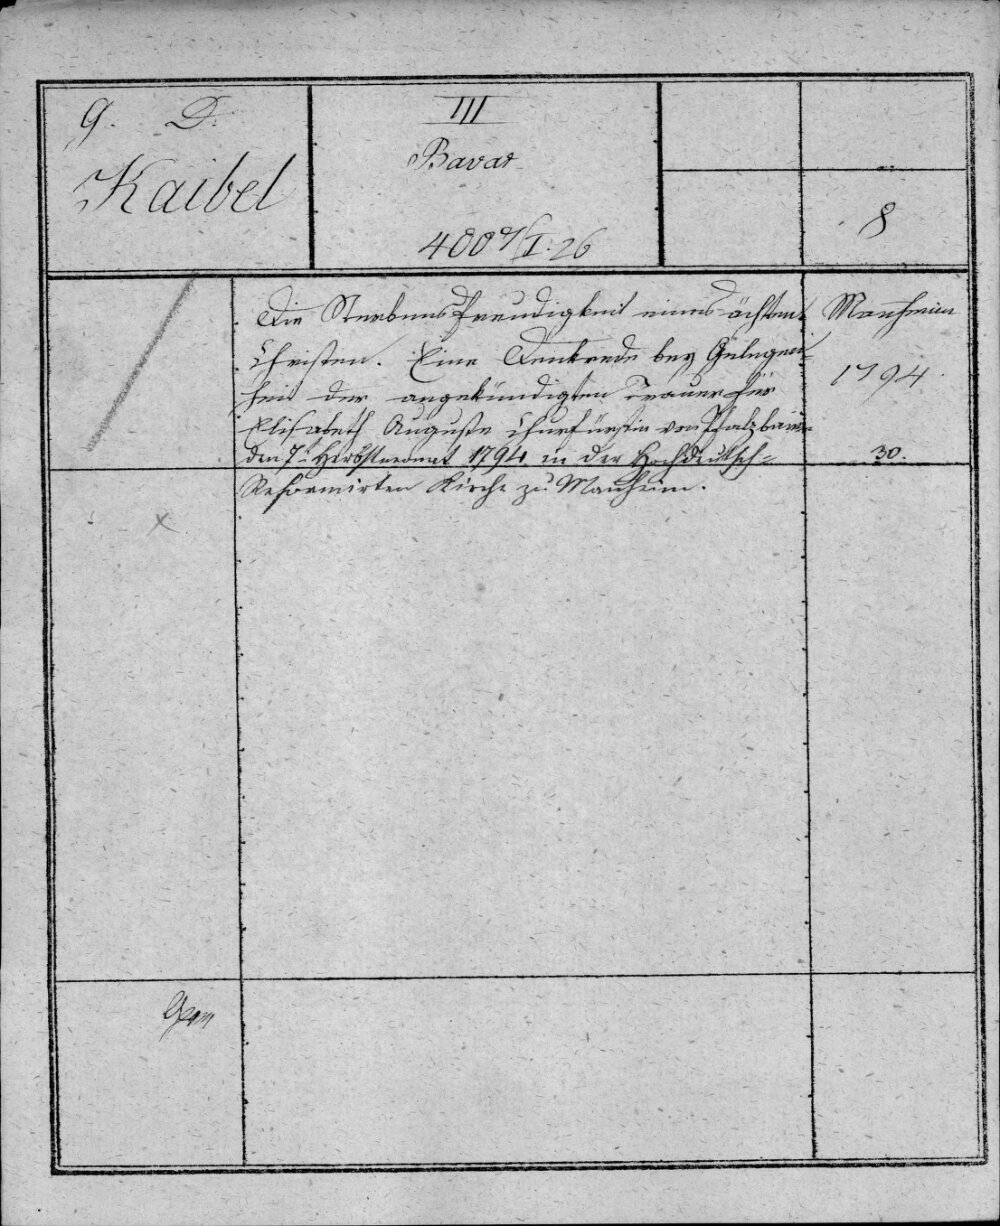 G. D.
Kaibel
III
Bavar
400 9/I. 26
8
Die Sterbens Freudigkeit eines ächten
Christen. Eine Denkrede bey Gelegen-
heit der angekündigten Trauer für
Elisabeth Auguste Churfürstin von Pfalzbaiern
den 7t Herbstmonat 1794 in der Hochdeutsch-
Reformirten Kirche zu Manheim.
Manheim
1794.
30.
x